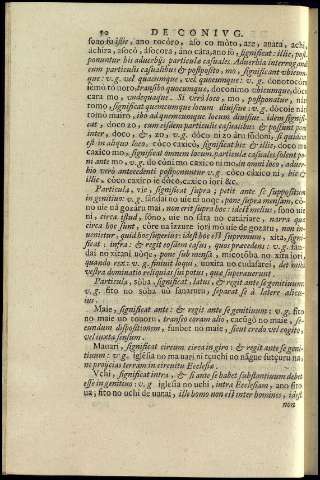 50 DE CONIVG.
sono fu aſtie, ano tocòro, aſo co mòto, are, anata, achi,
achira, aſocò, aſocora, ano cata, ano fô, ſignificat: illic, poſ-
ponuntur his aduerbijs particulæ caſuales. Aduerbia interrogandi
cum particulis caſualibus & poſtpoſito, mo, ſignificant vbicum-
que: v.g. vel quacumque, vel quocumque: v.g. donotocòro
iemô tô noro, tranſibo quocumque, doconimo vbicumque, dôco
cara mo, vndequaque. Si verò loco, mo, poſponatur, nir
romo, ſignificat quemcumque locum diuiſiuè: v.g. dòcoie nir
tomò mairò, ibo ad quemcumque locum diuiſiuè. idem ſignifi-
cat, doco zo, cum eiſdem particulis caſualibus & poſſunt poni
inter, doco, & zo, v.g. dòco ni zo àru fodoni, ſi quidem
eſt in aliquo loco. còco caxico, ſignificat hic & illic, mo doco
caxico mo, ſignificat omnem locum. particulæ caſuales ſolent po-
ni ante mo, v.g. do coni mo caxico ni mo, in omni loco, aduer-
bio verò antecedenti poſponuntur v.g. còco càxico ni, hic &
illic, còco caxico ie dòco, caxico iori &c.
Particula, vie, ſignificat ſupra; petit ante ſe ſuppoſitum
in genitiuo: v.g. fandai no uie ni uoqe, pone ſupra menſam, cò-
no uie nà gozaru mai, non erit ſupra hoc: id eſt melius, ſono uie
ni, circa iſtud, ſòno, uie no fata no catàriare, narra quæ
circa hoc ſunt, còre na izaure iori mo uie de gozatu, non in-
uenitur, quid hoc ſuperior: id eſt hoc eſt ſupremum, xita, ſigni-
ficat: infra: & regit eoſdem caſus, quos præcedens: v.g. fan-
dai no xitani uòqe, pone ſub menſa, micotòba no xita iori,
quando rex: v.g. finiuit loqui, voxita no cudaſarei, det mihi
veſtra dominatio reliquias ſui potus, quæ ſuperauerunt.
Particula, ſòba, ſignificat, latus, & regit ante ſe genitiuum:
v.g. fito no ſoba uò fanàruru, ſeparat ſe à latere alicu-
ius.
Maie, ſignificat ante: & regit ante ſe genitiuum: v.g. fito
no maie uo touoru, tranſeo coram alio, cacugò no maie, ſe-
cundum diſpoſitionem, funbet no maie, ſicut credo vel cogito,
vel iuxta ſenſum.
Mauari, ſignificat circum circa in giro: & regit ante ſe geni-
tiuum: v.g. igleſia no ma uari ni tçuchi no nàgue futçuru na,
ne proijcias terram in circuitu Eccleſiæ.
Vchi, ſignificat intra, & ſi ante ſe habet ſubſtantiuum debet
eſſe in genitiuo: v.g igleſia no uchi, intra Eccleſiam, ano fito
ua, fito no uchi de uanai, ille homo non eſt inter homines, id eſt
non